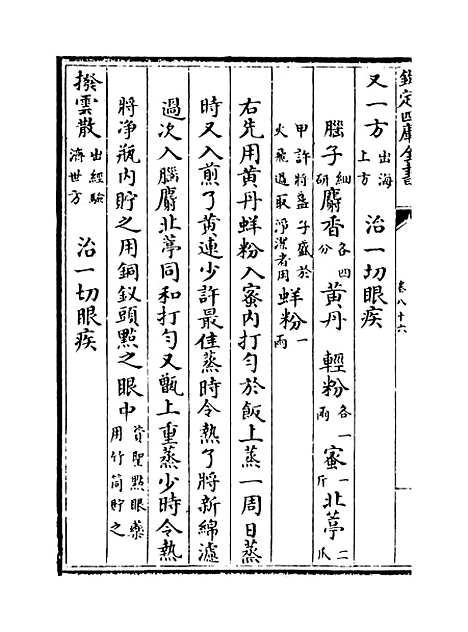 欽定四庫全書
卷八十六
又一方出海上方 治一切眼疾
腦子細研麝香各四分黄丹 輕粉各一兩蜜一斤北葶二爪
甲許將盞子盛於火飛過取浄潔者用蚌粉一兩
右先用黄丹蚌粉入蜜内打匀於飯上蒸一周日蒸
時又入煎了黄連少許最佳蒸時令熱了將新綿濾
過次入腦麝北葶同和打匀又甑上重蒸少時令熱
將浄瓶内貯之用銅釵頭點之眼中資聖點眼藥用竹筒貯之
撥雲散出經驗濟世方 治一切眼疾